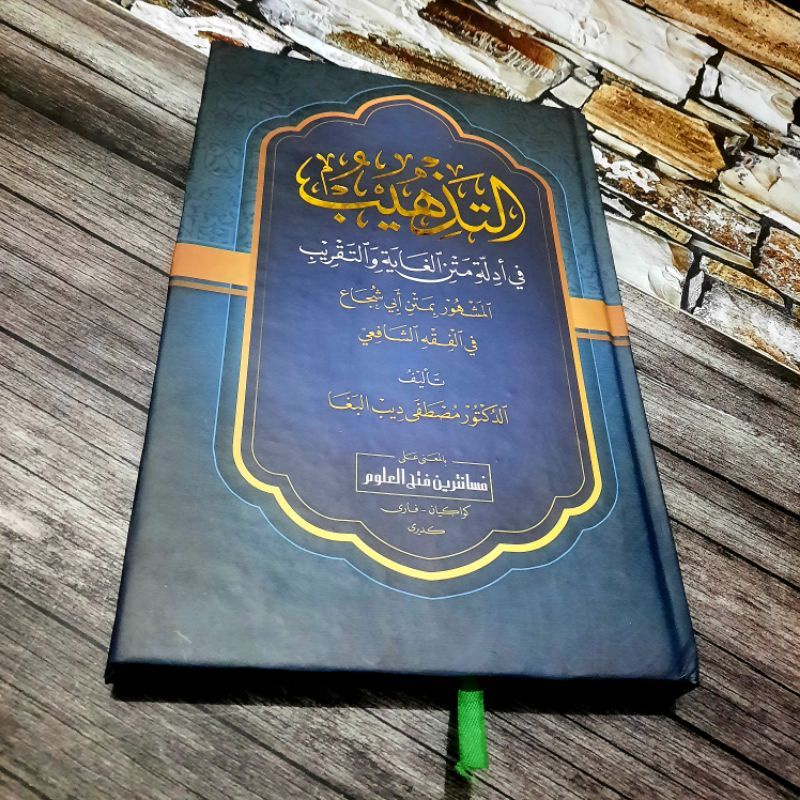 التَّذْهِيبُ
فِي أَدِلَّةِ مَتْنِ الْغَايَةِ وَالتَّقْرِيبِ
الْمَشْهُوْرُ بِمَتْنِ أَبِي شُجَاع
فِي الْفِقْهِ الشَّافِعِيّ
تَأْلِيْفُ
الدُّكْتُوْرُ مُصْطَفَى دِيبْ الْبَغَا
بالمعنى على
فسانترين فتح العلوم
كواكيان - فارى
كديرى